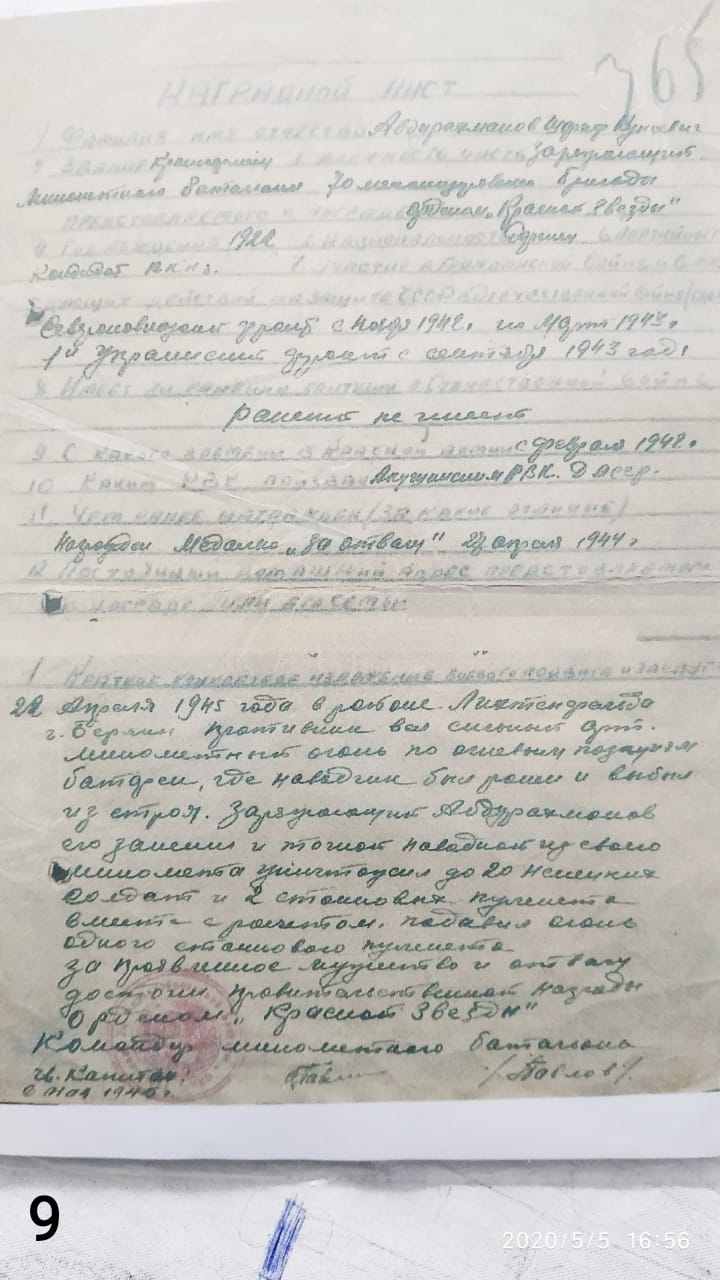 365
НАГРАДНОЙ ЛИСТ
1 Фамилия имя отчество Абдурахманов
2 Звание Красноармеец 3 должность часть Заряжающий
Минометного батальона 70 механизированной бригады
представляется к орденом „Красной Звезды"
4 Год рождения 1922 5 Национальность 6 Партийность
Кандидат В.К.П.б. 7 участие в Гражданской войне и в
дующих действий по защите СССР в отечественной войне
Северозападный фронт с Ноября 1942г. по Март 1943г.
1й Украинский фронт с сентября 1943 года
8 Имеет ли ранения в Отечественной войне
ранений не имеет
9 С какого времени в Красной армии с февраля 1942г.
10 Каким РВК призван Акушинским РВК. ДАССР.
11 Чем ранее награжден /за какие отличия/
Награжден Медалью „За отвагу" апреля 1944г
12 Постоянный домашний адрес представляемого
к награде или его семьи
1 Краткое конкретное изложение боевого подвига и заслуг
22 Апреля 1945 года в районе Лихтенрадьба
г. Берлин противник вел сильный арт.
минометный огонь по огневым позициям
батареи, где наводчик был ранен и выбыл
из строя. Заряжающий Абдурахманов
его заменил и точной наводкой из своего
миномета уничтожил до 20 немецких
солдат и 2 станковых пулемета
вместе с расчетом, подавил огонь
одного станкового пулемета
за проявленное мужество и отвагу
достоин правительственной награды
Орденом „Красной Звезды"
Командир минометного батальона
гв. Капитан /Павлов/
Мая 1945г.
9
2020/5/5 16:56